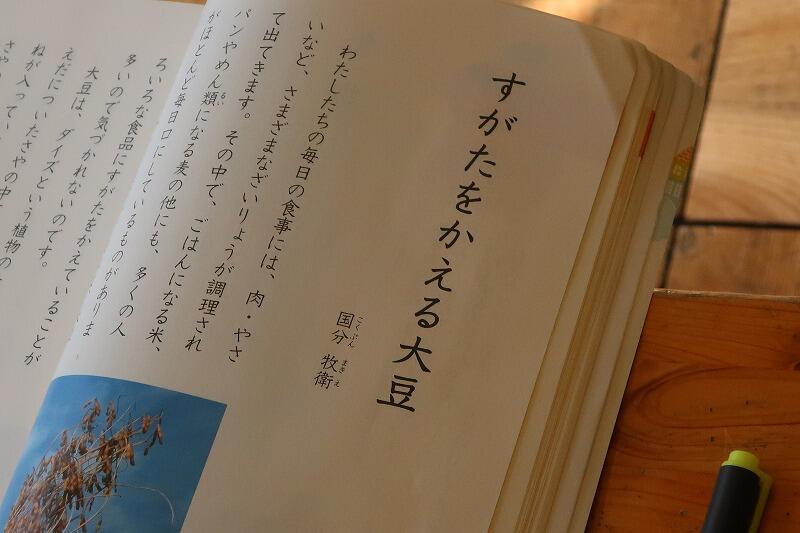 すがたをかえる大豆
国分 牧衛
こくぶん まきえ
わたしたちの毎日の食事には、肉・やさ
いなど、さまざまなざいりょうが調理され
て出てきます。その中で、ごはんになる米、
パンやめん類になる麦の他にも、多くの人
るい
がほとんど毎日口にしているものがありま
ろいろな食品にすがたをかえていることが
多いので気づかれないのです。
大豆は、ダイズという植物の
えだについたさやの中
ねが入ってい